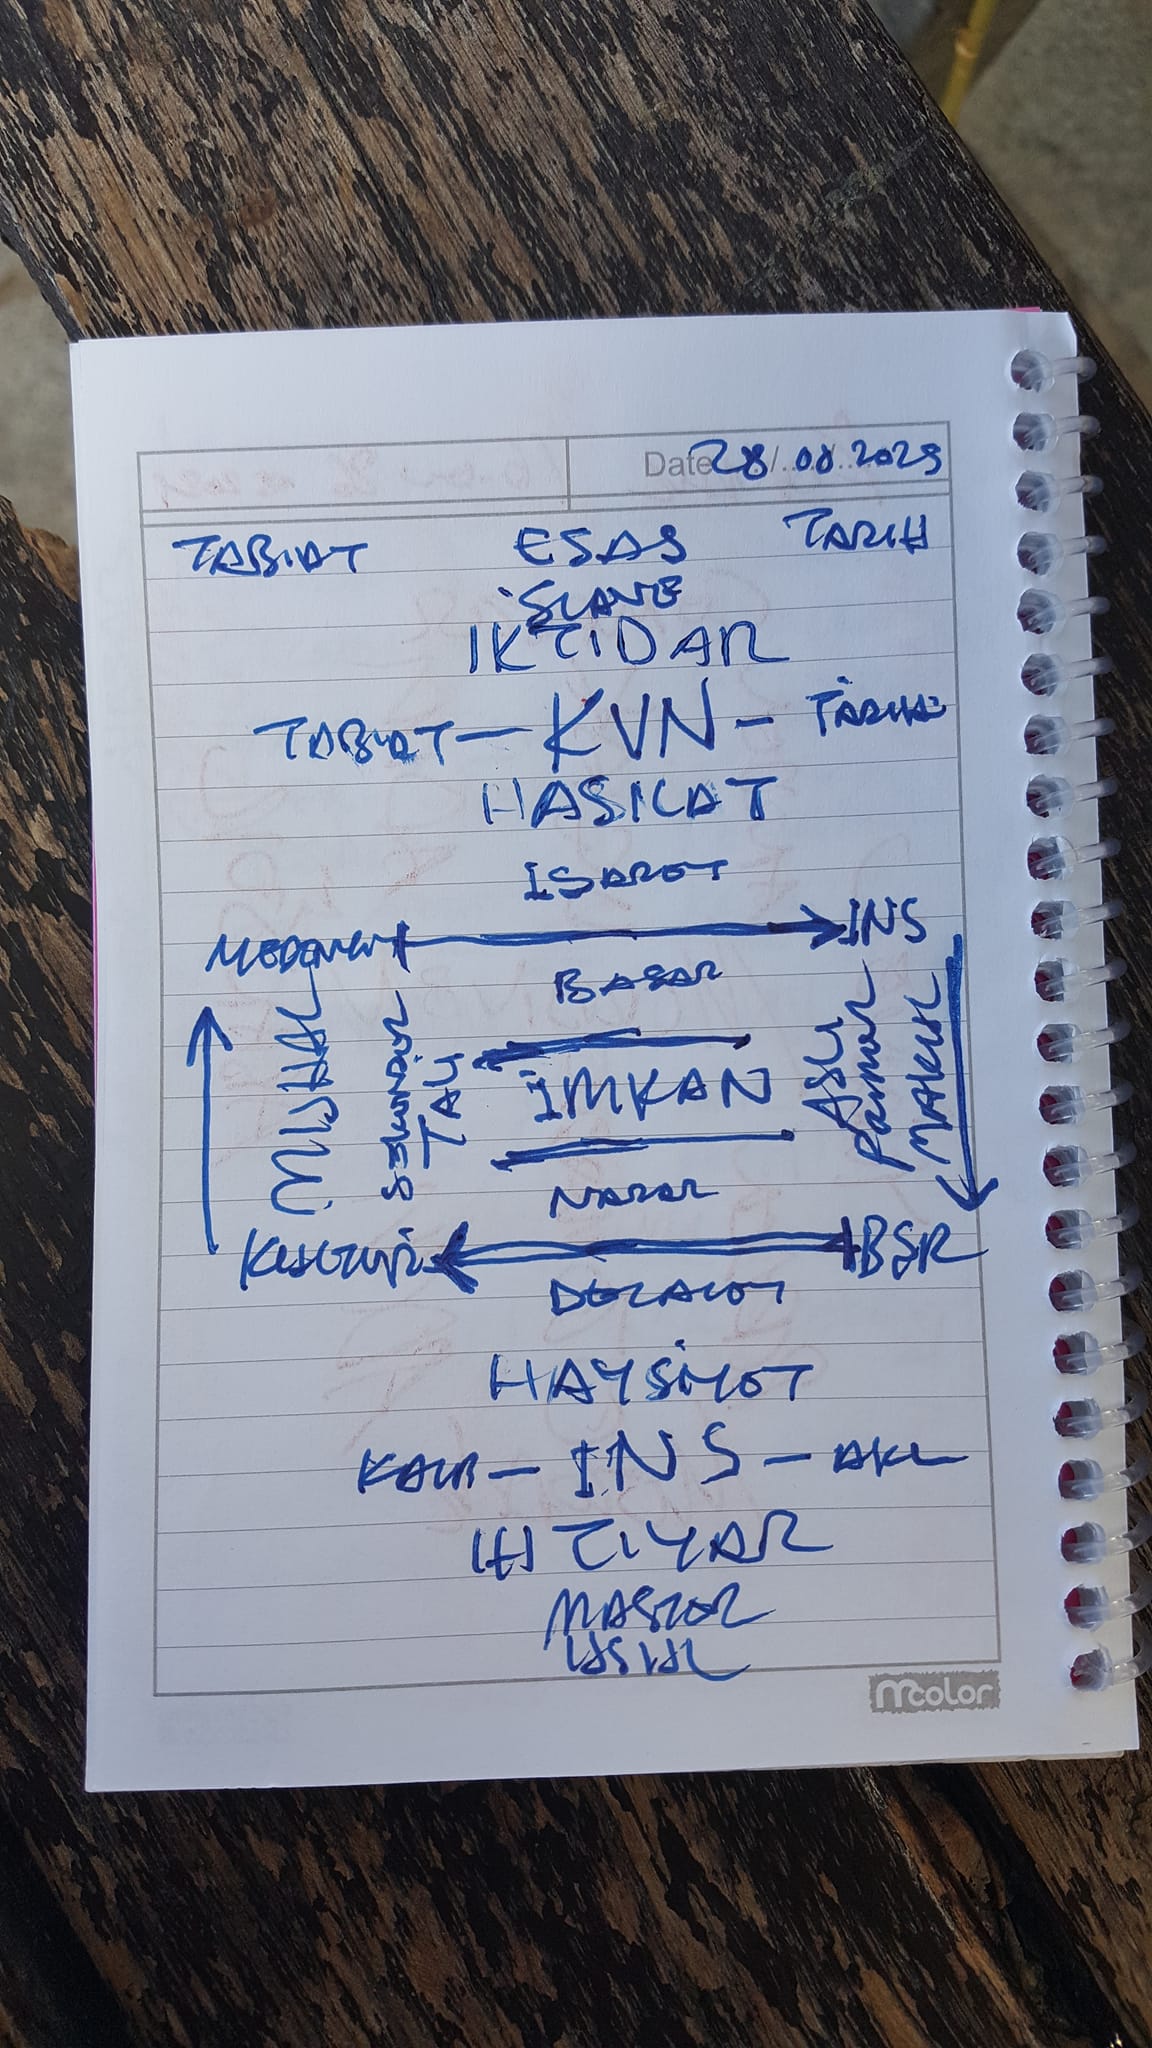 Date 28/08/2025
TABIAT ESAS TARIH
İSLAVE
IKTIDAR
TABIAT - KVN - TARIH
HASILAT
ISARET
MEDENIYET INS
BASAR
MUHAL
SEKUNDER
TALI
İMKAN
ASLI
PRIMER
MAKUL
NAZAR
KULTUR BSR
DELALET
HAYSİYET
KALB - INS - AKL
IHTIYAR
MASTAR
USUL
mcolor